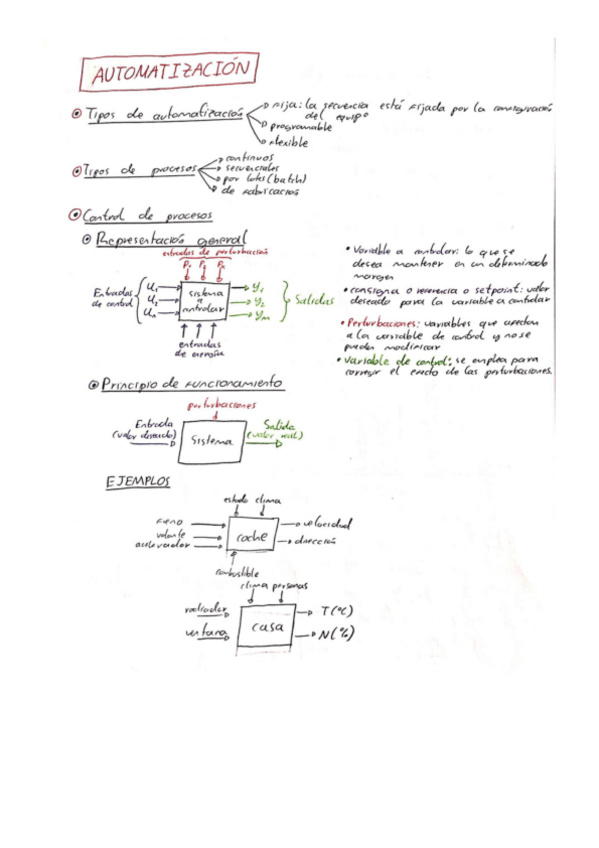 AUTOMATIZACIÓN
Tipos de automatización
Fija: la secuencia está fijada por la configuración
del equipo
programable
flexible
Tipos de procesos
continuos
secuenciales
por lotes (batch)
de fabricación
Control de procesos
Representación general
entradas de perturbación
P1 P2 Pn
Entradas de control
u1
u2
un
sistema a controlar
y1
y2
ym
Salidas
entradas de energía
• Variable a controlar: lo que se
desea mantener en un determinado
margen
• consigna o referencia o setpoint: valor
deseado para la variable a controlar
• Perturbaciones: variables que afectan
a la variable de control y no se
pueden modificar
• Variable de control: se emplea para
corregir el efecto de las perturbaciones.
Principio de funcionamiento
perturbaciones
Entrada
(valor deseado)
Sistema
Salida
(valor real)
EJEMPLOS
estado clima
freno
volante
acelerador
coche
velocidad
dirección
combustible
clima personas
radiador
ventana
casa
T(ºC)
N(%)